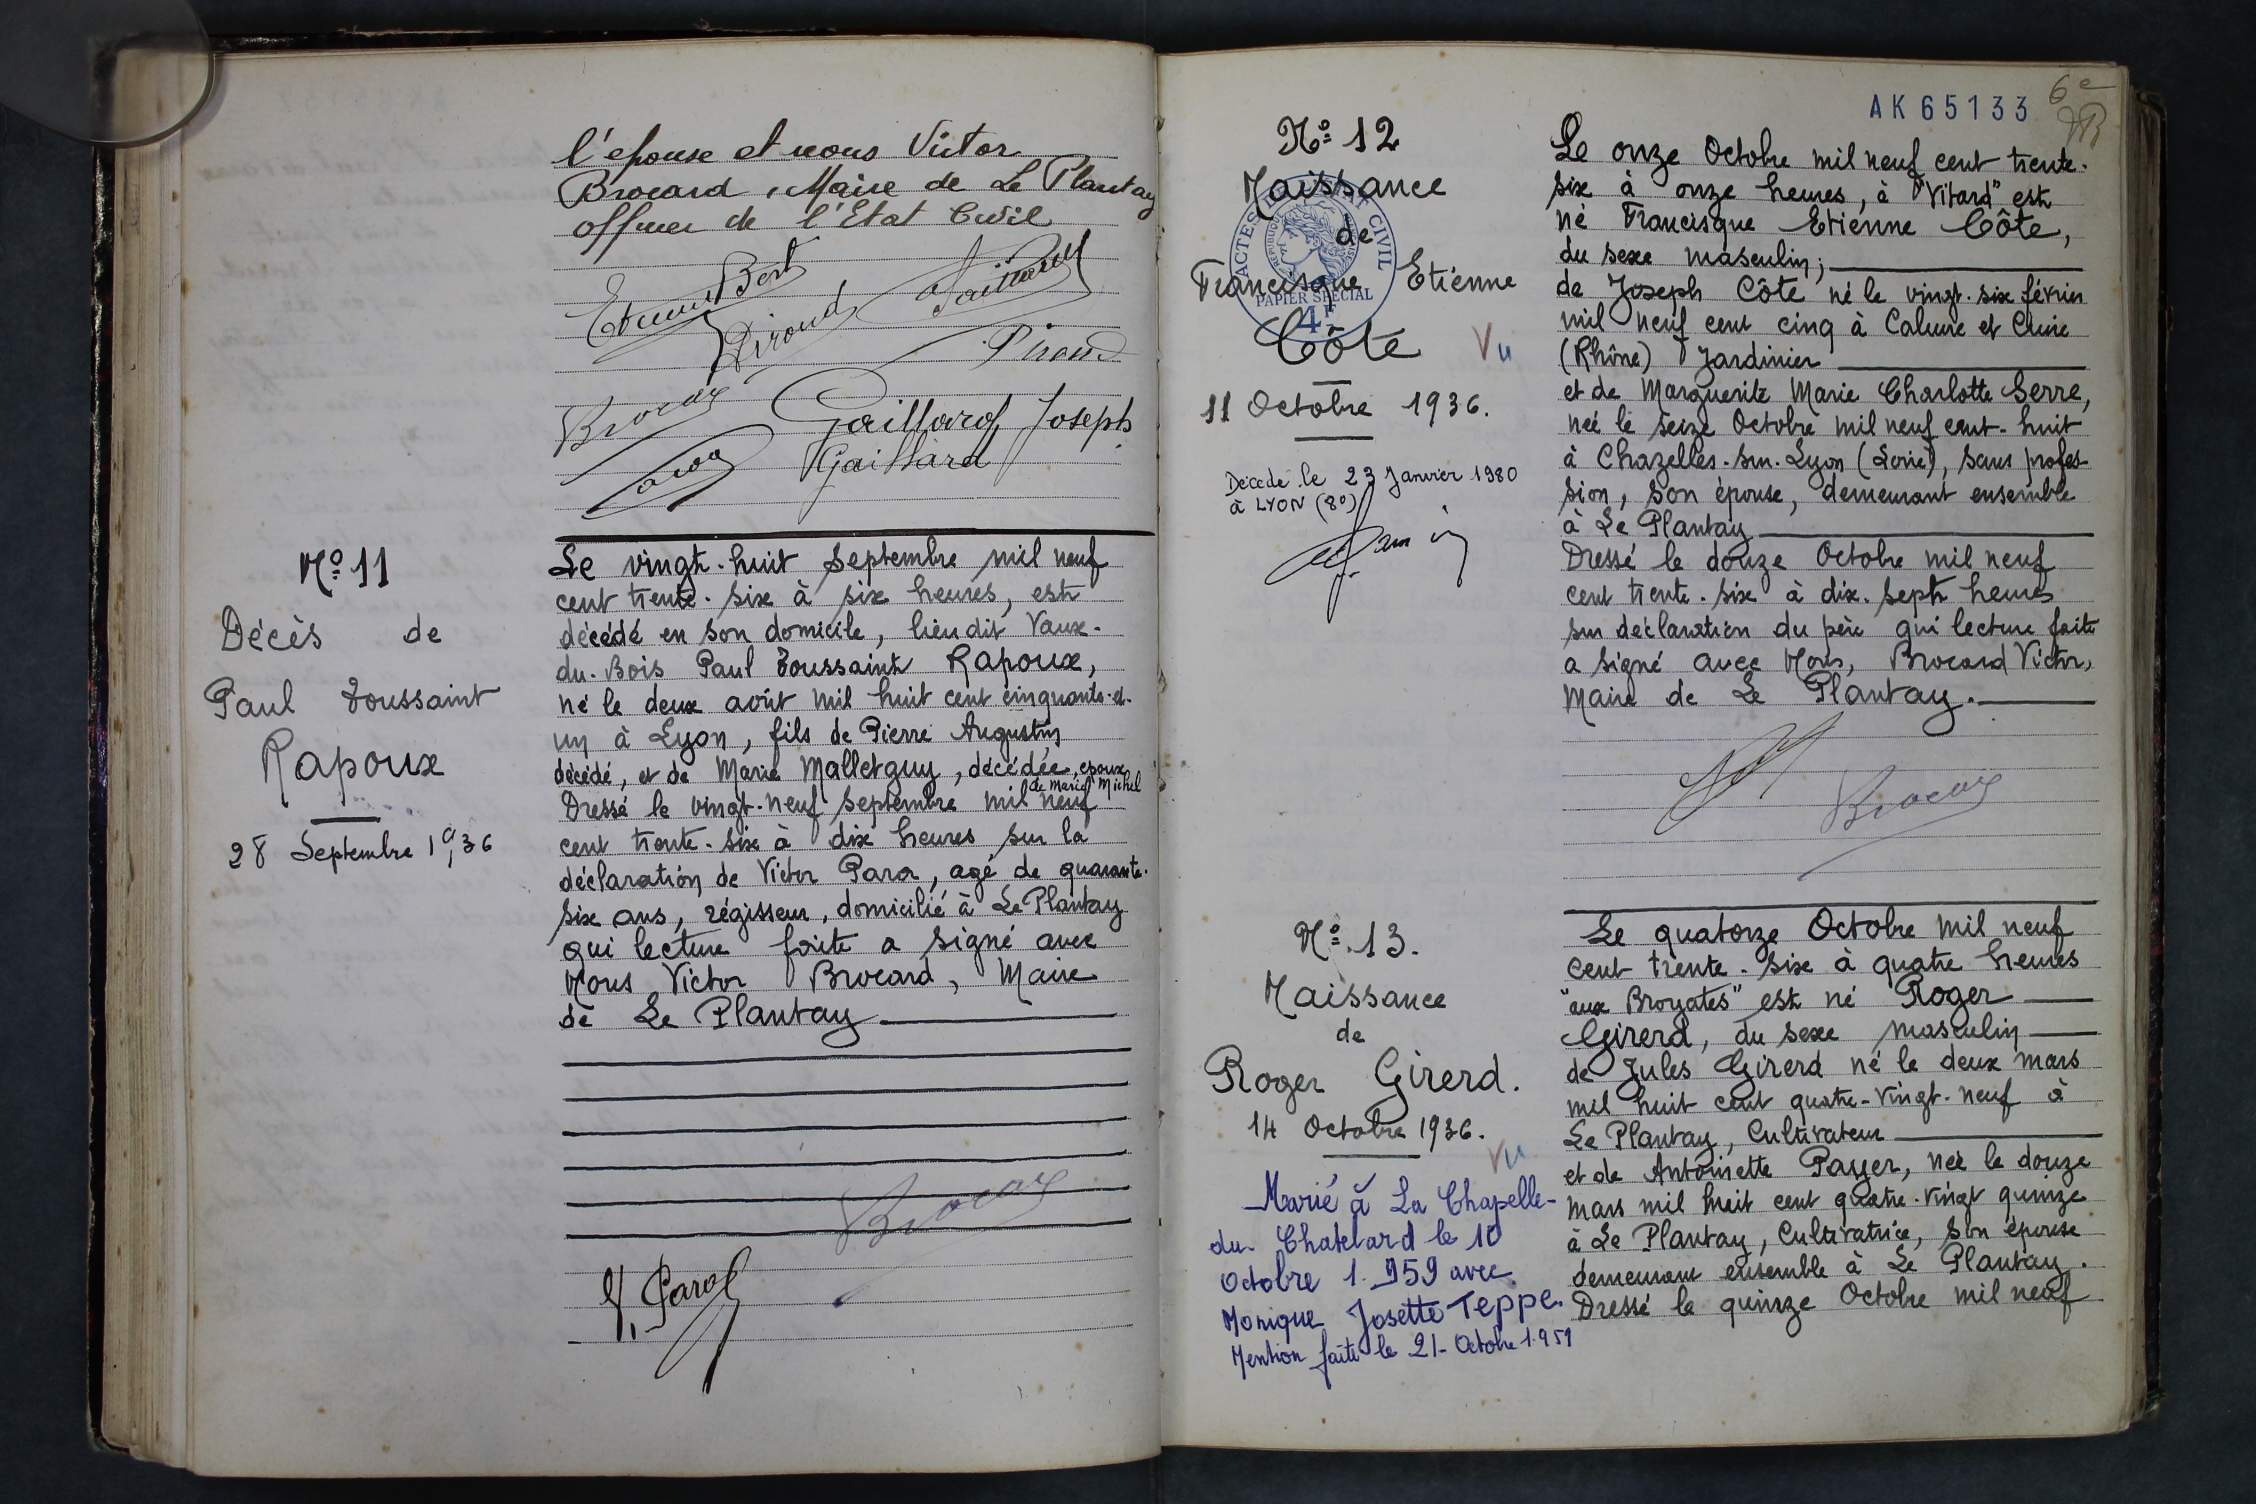 l'épouse et nous Victor
Brocard, Maire de Le Plantay
officier de l'Etat Civil
Bert
Giroud
P Giroud
Brocard
Gaillard Joseph
Gaillard
Nº 11
Décès de
Paul Toussaint
Rapoux
28 Septembre 1936
Le vingt-huit septembre mil neuf
cent trente-six à six heures, est
décédé en son domicile, lieu dit Vaux-
du-Bois Paul Toussaint Rapoux,
né le deux août mil huit cent cinquante-et-
un à Lyon, fils de Pierre Augustin
décédé, et de Marie Malletguy, décédée, époux
de Marie Michel
Dressé le vingt-neuf septembre mil neuf
cent trente-six à dix heures sur la
déclaration de Victor Parot, agé de quarante-
six ans, régisseur, domicilié à Le Plantay
qui lecture faite a signé avec
Nous Victor Brocard, Maire
de Le Plantay
Brocard
V. Parot
AK 65133
6e
Nº 12
Naissance
de
Francisque Etienne
Côte
11 Octobre 1936.
Vu
ACTES DE L'ETAT CIVIL
PAPIER SPECIAL
4F
Décédé le 23 Janvier 1980
à LYON (8º)
Le onze Octobre mil neuf cent trente-
six à onze heures, à "Vitard" est
né Francisque Etienne Côte,
du sexe masculin;
de Joseph Côte né le vingt-six février
mil neuf cent cinq à Caluire et Cuire
(Rhône) Jardinier
et de Marguerite Marie Charlotte Serre,
née le seize Octobre mil neuf cent-huit
à Chazelles-sur-Lyon (Loire), sans profes-
sion, son épouse, demeurant ensemble
à Le Plantay
Dressé le douze Octobre mil neuf
cent trente-six à dix-sept heures
sur déclaration du père qui lecture faite
a signé avec Nous, Brocard Victor,
Maire de Le Plantay.
Brocard
Nº 13.
Naissance
de
Roger Girerd.
14 Octobre 1936.
Vu
Marié à La Chapelle-
du-Chatelard le 10
Octobre 1.959 avec
Monique Josette Teppe.
Mention faite le 21-Octobre 1.959
Le quatorze Octobre mil neuf
cent trente-six à quatre heures
"aux Broyates" est né Roger
Girerd, du sexe masculin
de Jules Girerd né le deux mars
mil huit cent quatre-vingt-neuf à
Le Plantay, Cultivateur
et de Antoinette Payer, née le douze
mars mil huit cent quatre-vingt quinze
à Le Plantay, Cultivatrice, son épouse
demeurant ensemble à Le Plantay.
Dressé le quinze Octobre mil neuf